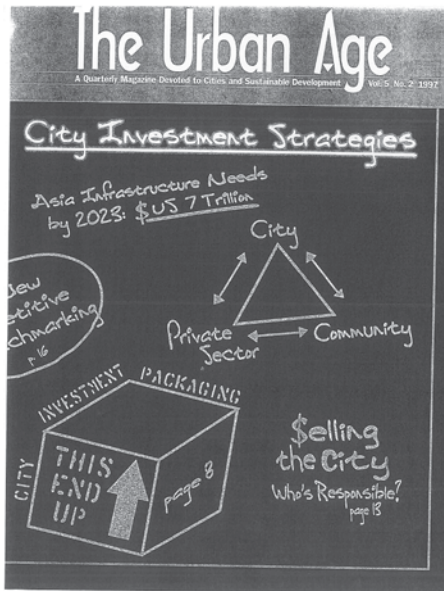 The Urban Age
A Quarterly Magazine Devoted to Cities and Sustainable Development Vol. 5, No. 2 1997
City Investment Strategies
Asia Infrastructure Needs
by 2023: $US 7 Trillion
City
Private
Sector
Community
New
etitive
chmarking
p. 16
CITY INVESTMENT PACKAGING
THIS
END
UP
page 8
$elling
the City
Who's Responsible?
page 13